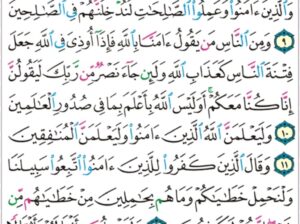 وَالَّذِينَ ءَامَنُوا۟ وَعَمِلُوا۟ الصَّٰلِحَٰتِ لَنُدْخِلَنَّهُمْ فِى الصَّٰلِحِينَ
٩ وَمِنَ النَّاسِ مَن يَقُولُ ءَامَنَّا بِاللَّهِ فَإِذَآ أُوذِىَ فِى اللَّهِ جَعَلَ
فِتْنَةَ النَّاسِ كَعَذَابِ اللَّهِ وَلَئِن جَآءَ نَصْرٌ مِّن رَّبِّكَ لَيَقُولُنَّ
إِنَّا كُنَّا مَعَكُمْ أَوَلَيْسَ اللَّهُ بِأَعْلَمَ بِمَا فِى صُدُورِ الْعَٰلَمِينَ
١٠ وَلَيَعْلَمَنَّ اللَّهُ الَّذِينَ ءَامَنُوا۟ وَلَيَعْلَمَنَّ الْمُنَٰفِقِينَ
١١ وَقَالَ الَّذِينَ كَفَرُوا۟ لِلَّذِينَ ءَامَنُوا۟ اتَّبِعُوا۟ سَبِيلَنَا
وَلْنَحْمِلْ خَطَٰيَٰكُمْ وَمَا هُم بِحَٰمِلِينَ مِنْ خَطَٰيَٰهُم مِّن